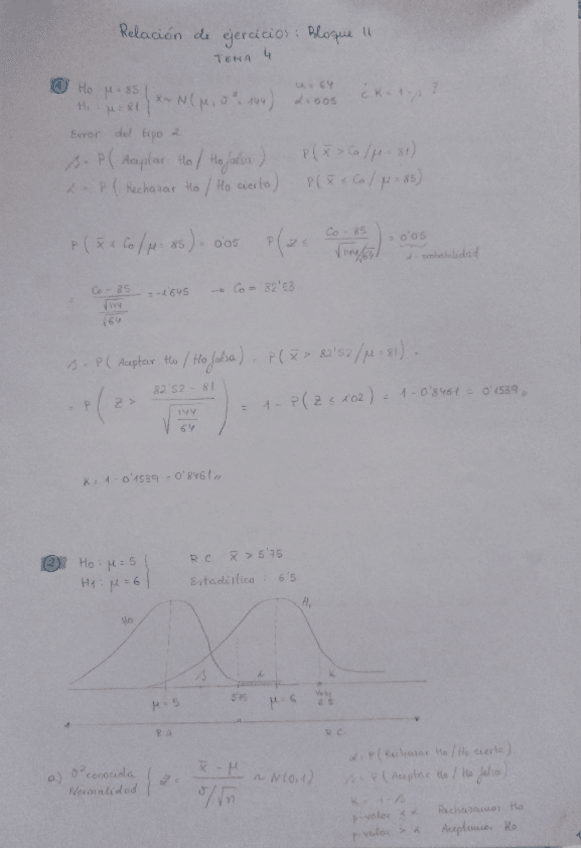 Relación de ejercicios: Bloque II
TEMA 4
① H0: μ = 85
H1: μ = 81 } x ~ N(μ, σ² = 144) n = 64 α = 0'05 ¿ K = 1 - β ?
Error del tipo 2
β = P( Aceptar H0 / H0 falsa ) P( x̄ > C0 / μ = 81 )
α = P( Rechazar H0 / H0 cierta ) P( x̄ ≤ C0 / μ = 85 )
P( x̄ ≤ C0 / μ = 85 ) = 0'05 P( Z ≤ (C0 - 85) / √(144/64) ) = 0'05
α = probabilidad
= (C0 - 85) / (√144 / √64) = -1'645 → C0 = 82'53
β = P( Aceptar H0 / H0 falsa ) = P( x̄ > 82'52 / μ = 81 ) =
= P( Z > (82'52 - 81) / √(144/64) ) = 1 - P( Z ≤ 1'02 ) = 1 - 0'8461 = 0'1539
K = 1 - 0'1539 = 0'8461
② H0: μ = 5 } R.C. x̄ > 5'75
H1: μ = 6 } Estadístico: 6'5
H0 H1
β α K
μ = 5 5'75 μ = 6 6'5
R.A. R.C.
a) σ² conocida
Normalidad { Z = (x̄ - μ) / (σ/√n) ~ N(0,1)
α = P( Rechazar H0 / H0 cierto )
β = P( Aceptar H0 / H0 falsa )
K = 1 - β
p-valor ≤ α Rechazamos H0
p-valor > α Aceptamos H0